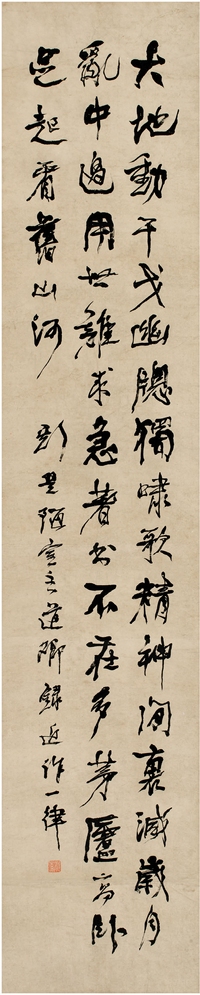 大地動干戈幽窗獨嘯歌精神閒裏減歲月
亂中過用世難求急著書不在多茅廬高臥
足起看舊山河
陋室主道卿錄近作一律